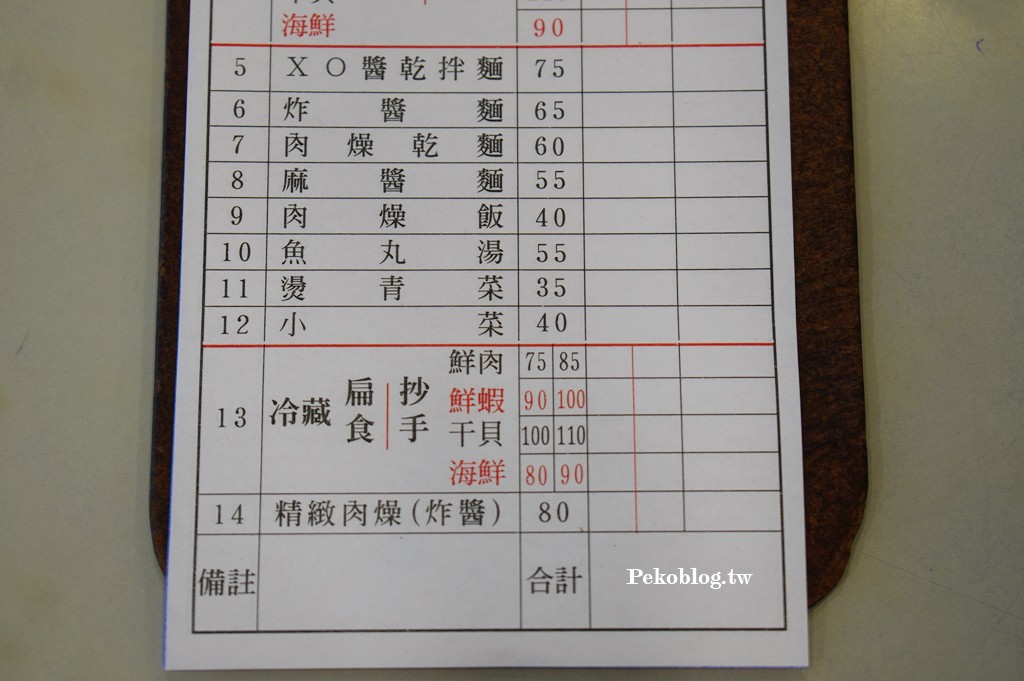 海鮮 90
5 XO醬乾拌麵 75
6 炸醬麵 65
7 肉燥乾麵 60
8 麻醬麵 55
9 肉燥飯 40
10 魚丸湯 55
11 燙青菜 35
12 小菜 40
13 冷藏 扁食 抄手
鮮肉 75 85
鮮蝦 90 100
干貝 100 110
海鮮 80 90
14 精緻肉燥(炸醬) 80
備註 合計
Pekoblog.tw